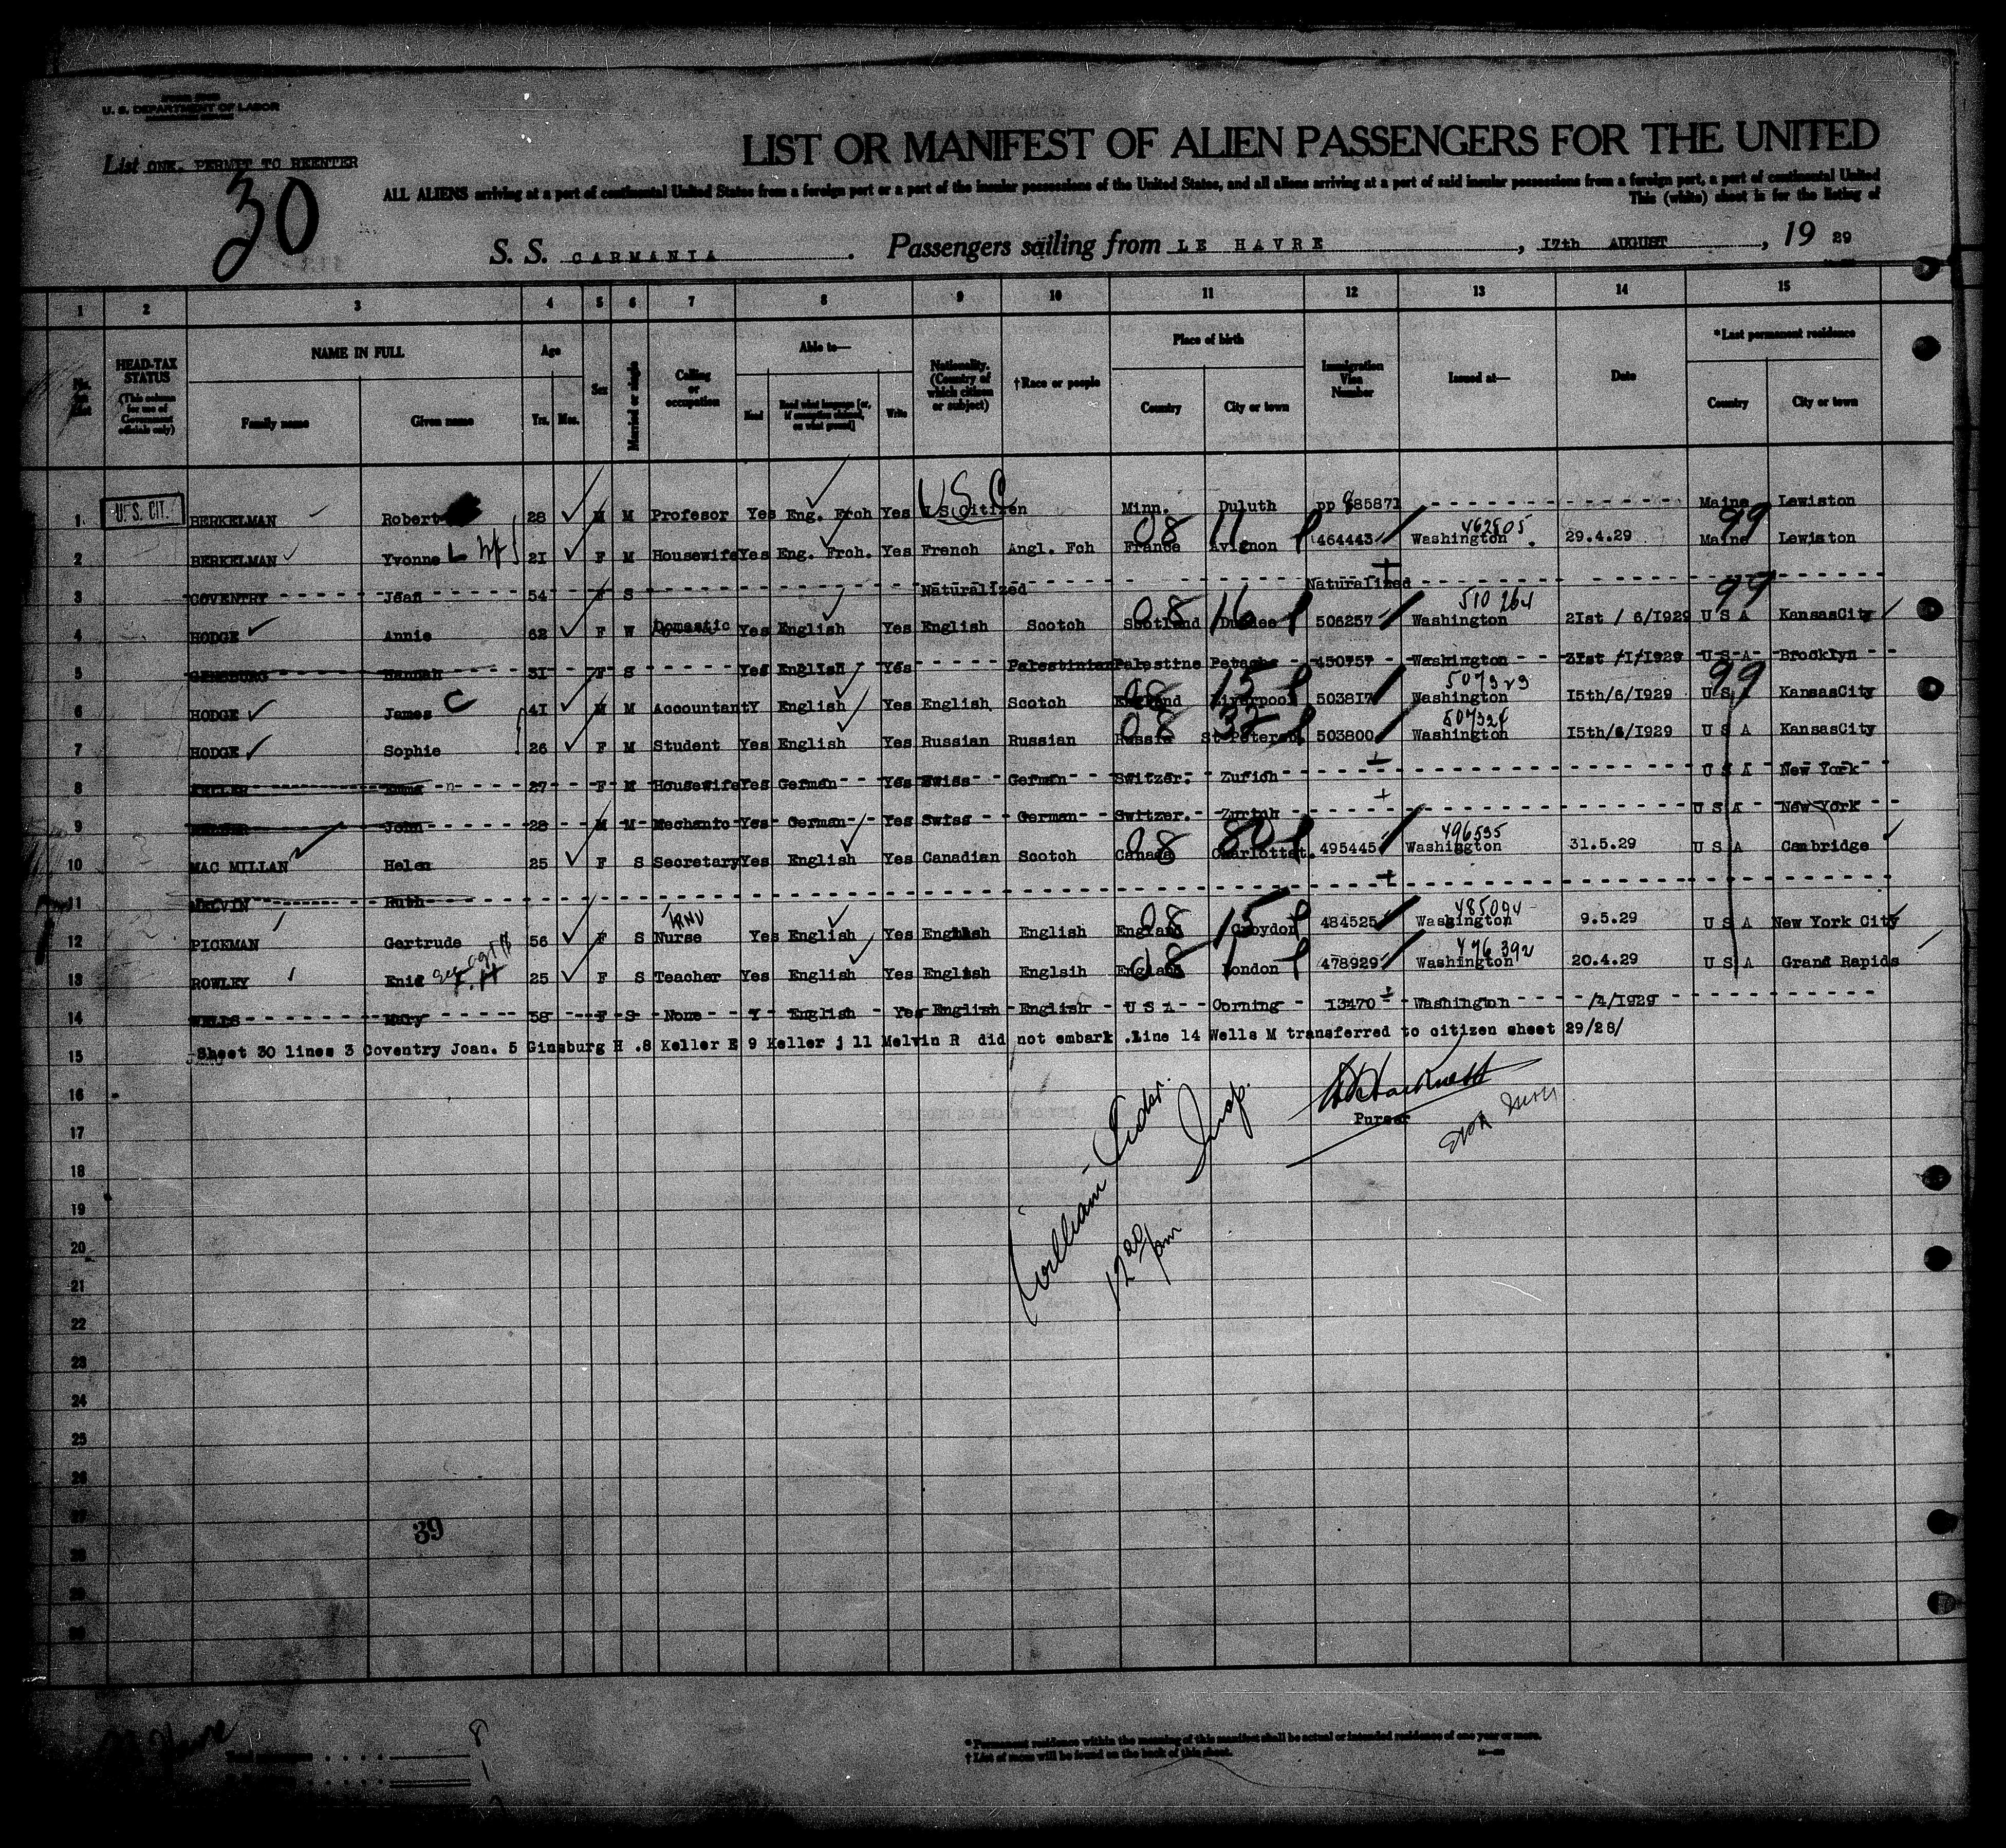 U. S. DEPARTMENT OF LABOR
List ONE. PERMIT TO REENTER
30
LIST OR MANIFEST OF ALIEN PASSENGERS FOR THE UNITED
ALL ALIENS arriving at a port of continental United States from a foreign port or a port of the insular possessions of the United States, and all aliens arriving at a port of said insular possessions from a foreign port, a port of continental United
This (white) sheet is for the listing of
S. S. CARMANIA. Passengers sailing from LE HAVRE, 17th AUGUST, 19 29
1 2 3 4 5 6 7 8 9 10 11 12 13 14 15
No. on List HEAD-TAX STATUS (This column for use of Government officials only) NAME IN FULL Family name Given name Age Yrs. Mos. Sex Married or single Calling or occupation Able to— Read Read what language [or, if exemption claimed, on what ground] Write Nationality. (Country of which citizen or subject) †Race or people Place of birth Country City or town Immigration Visa Number Issued at— Date *Last permanent residence Country City or town
1 U. S. CIT. BERKELMAN Robert 28 M M Profesor Yes Eng. Frch Yes U.S. Citizen U S C Minn. Duluth pp 685871 Maine Lewiston
2 BERKELMAN Yvonne wf 21 F M Housewife Yes Eng. Frch. Yes French Angl. Fch France 08 Avignon 11 464443 Washington 462505 29.4.29 Maine 99 Lewiston
3 COVENTRY Jean 54 F S Naturalized Naturalized
4 HODGE Annie 62 F W Domestic Yes English Yes English Scotch Scotland 08 Dundee 16 506257 Washington 510264 21st / 6/1929 U S A 99 KansasCity
5 GINSBURG Hannah 31 F S Yes English Yes Palestinian Palestine 450757 Washington 31st /1/1929 U S A Brooklyn
6 HODGE James C 41 M M Accountant Y English Yes English Scotch England 08 Liverpool 15 503817 Washington 507323 15th/6/1929 U S A 99 KansasCity
7 HODGE Sophie 26 F M Student Yes English Yes Russian Russian Russia 08 St Petersb. 32 503800 Washington 15th/6/1929 U S A KansasCity
8 KELLER Emma 27 F M Housewife Yes German Yes Swiss German Switzer. Zurich U S A New York
9 KELLER John 28 M M Mechanic Yes German Yes Swiss German Switzer. Zurich U S A New York
10 MAC MILLAN Helen 25 F S Secretary Yes English Yes Canadian Scotch Canada 08 Charlottet. 80 495445 Washington 496535 31.5.29 U S A Cambridge
11 MELVIN Ruth
12 PICKMAN Gertrude 56 F S Nurse Yes English Yes English English England 08 Croydon 15 484525 Washington 485094 9.5.29 U S A New York City
13 ROWLEY Enid 25 F S Teacher Yes English Yes English Englsih England 08 London 1 478929 Washington 476392 20.4.29 U S A Grand Rapids
14 WELLS Mary 58 F S None Y English Yes English English U S A Corning 13470 Washington /4/1929
15 Sheet 30 lines 3 Coventry Joan. 5 Ginsburg H .8 Keller E 9 Keller j 11 Melvin R did not embark .Line 14 Wells M transferred to citizen sheet 29/28/
16
17 Purser
18
19
20
21
22
23
24
25
26
27
28
29
30
William
Insp.
12 20 pm
39
*Permanent residence within the meaning of this manifest shall be actual or intended residence of one year or more.
†List of races will be found on the back of this sheet.